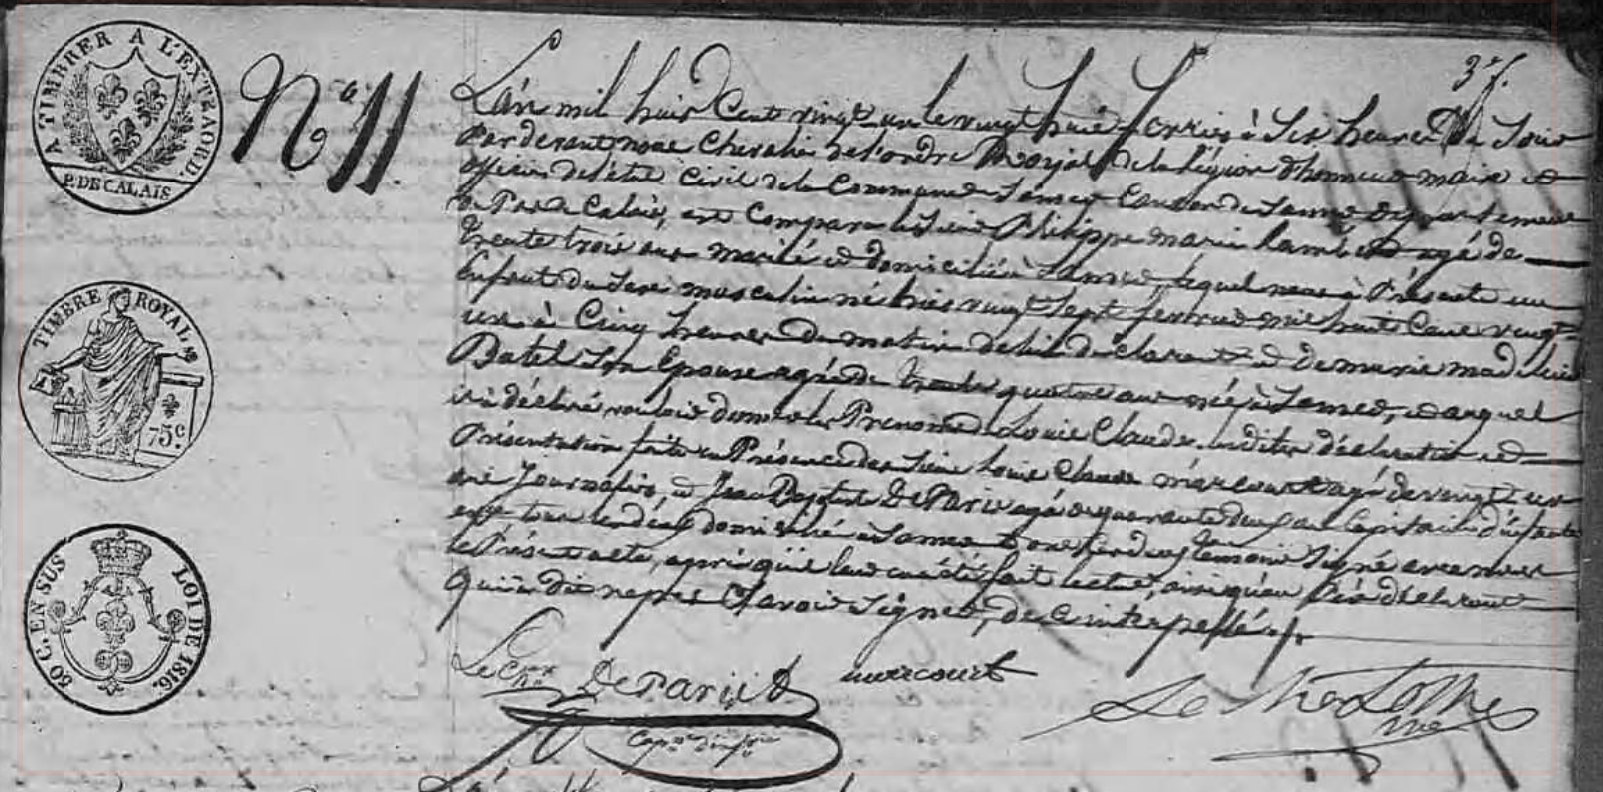 A TIMBRER A L'EXTRAORD.
P. DE CALAIS
TIMBRE ROYAL
75c
50 C. EN SUS
LOI DE 1816.
N° 11
3e f.
L'an mil huit Cent vingt un le vingt huit fevrier à Six heures du Soir
Pardevant nous Chevalier de l'ordre Royal de la Légion d'honneur maire et
officier de l'état Civil de la Commune de Samer Canton de Samer département
du Pas de Calais, est Comparu le Sieur Philippe marie Lambert agé de
trente trois ans marié et domicilié à Samer, lequel nous à Présenté un
Enfant du Sexe masculin né hier vingt Sept fevrier mil huit Cent vingt
un à Cinq heures du matin de lui déclarant et de marie madeleine
Batel Son Epouse agée de trente quatre ans née à Samer, et auquel
il à déclaré vouloir donner les Prenoms de Louis Claude. Lesdites déclaration et
Présentation faite en Présence des Sieurs Louis Claude marcourt agé de vingt un
ans Journalier, et Jean Baptiste De Paris agé de quarante deux ans Capitaine d'infanterie
tous les deux domicilié à Samer et ont les deux temoins Signé avec nous
le Présent acte, après qu'il leur en a été fait lecture, ainsi qu'au Père déclarant
qui à dit ne pas Savoir Signer, de Ce interpellé./.
Le Cher De Paris
Capne d'infrie
marcourt
Le Cher